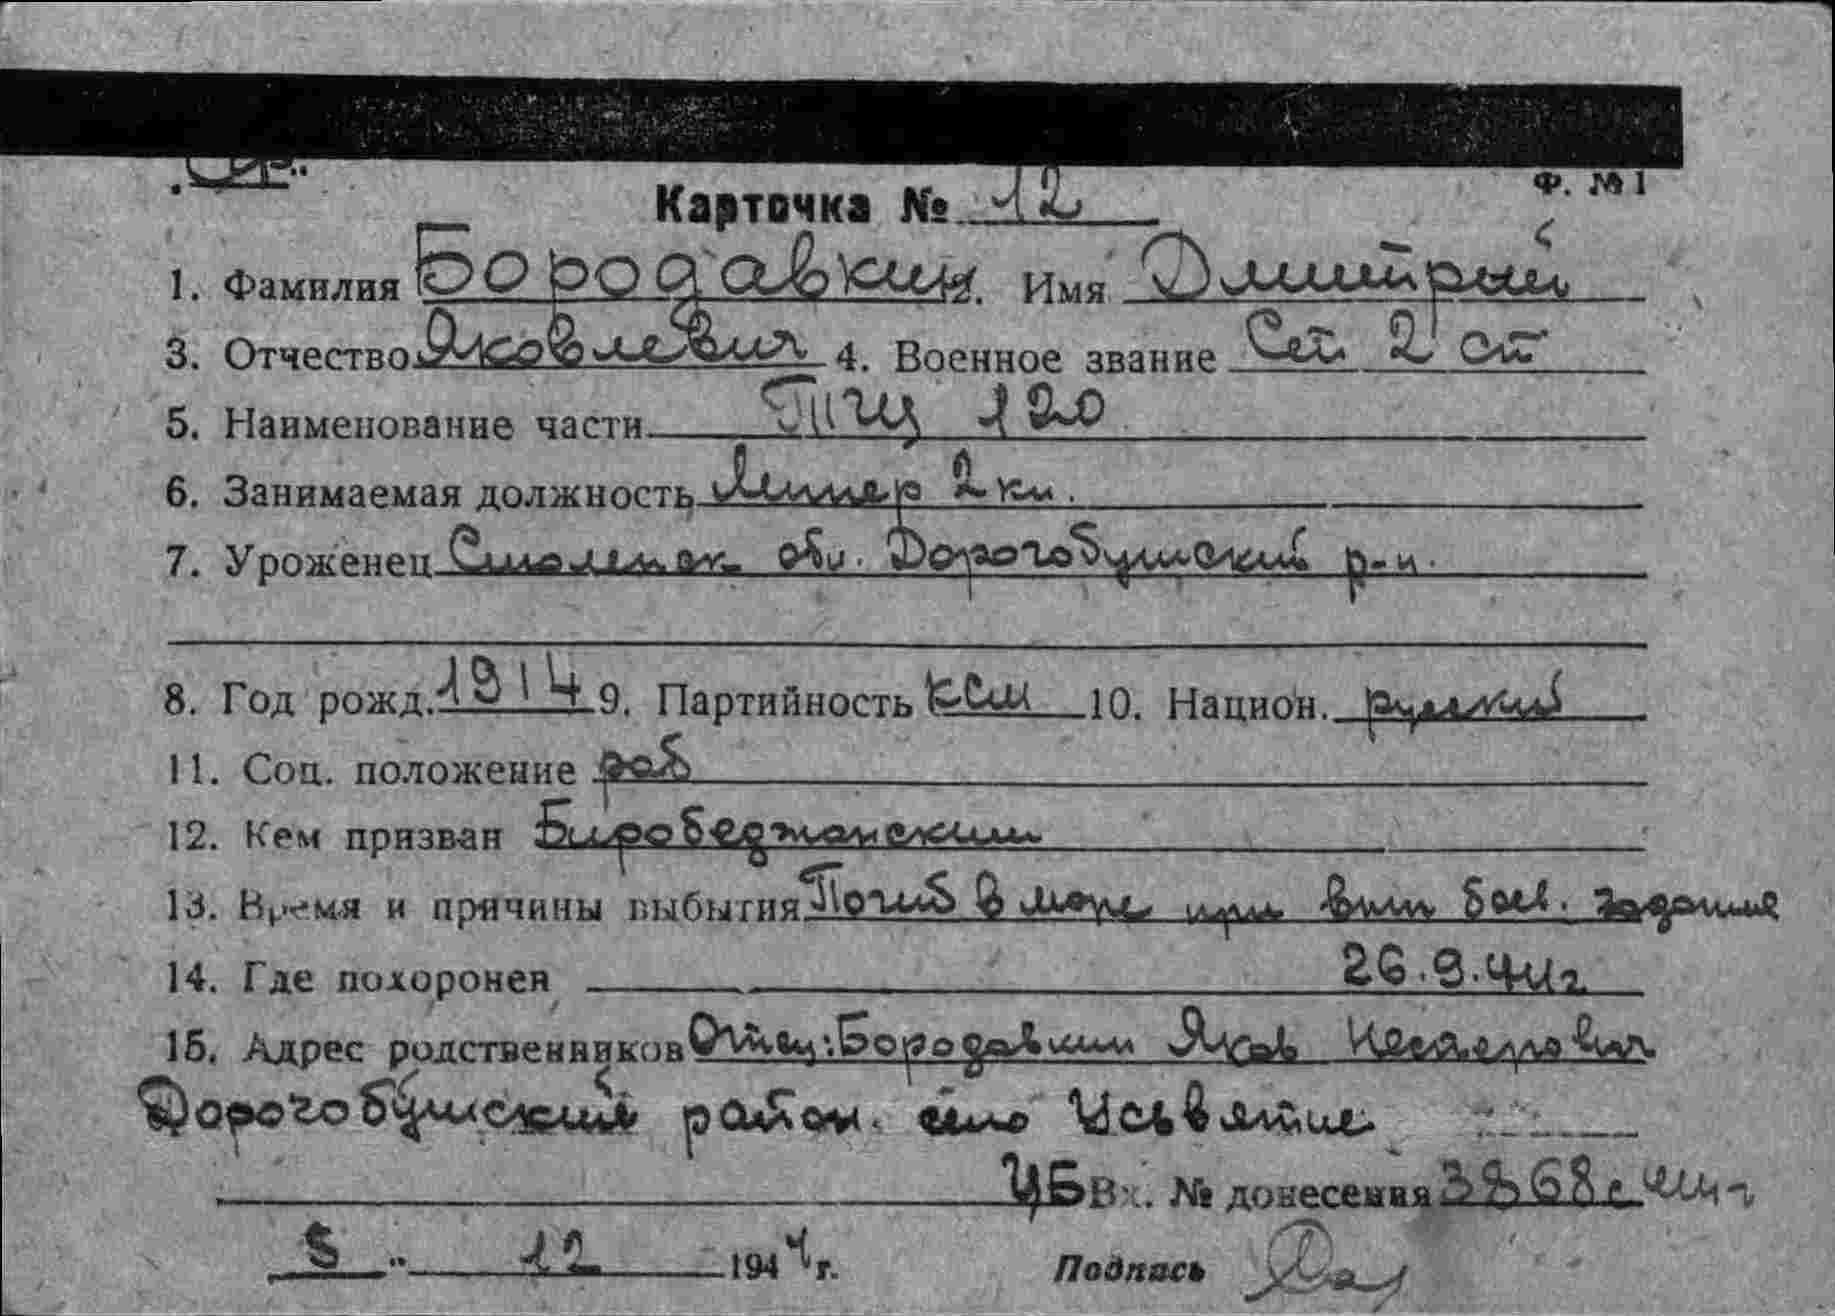 Ф. № 1
Карточка № 12
1. Фамилия Бородавкин 2. Имя Дмитрий
3. Отчество Яковлевич 4. Военное звание Ст 2 ст
5. Наименование части ТЩ 120
6. Занимаемая должность Минер 2 кл.
7. Уроженец Смоленск обл. Дорогобушский р-н.
8. Год рожд. 1914 9. Партийность ксм 10. Национ. русский
11. Соц. положение раб
12. Кем призван Биробеджанским
13. Время и причины выбытия Погиб в море при вып боев. задания
14. Где похоронен 26.9.44г
15. Адрес родственников Отец: Бородавкин Яков
Дорогобушский район. село Усьвятие
ЦБ Вх. № донесения 3868с 44г
5 " 12 1944г.
Подпись